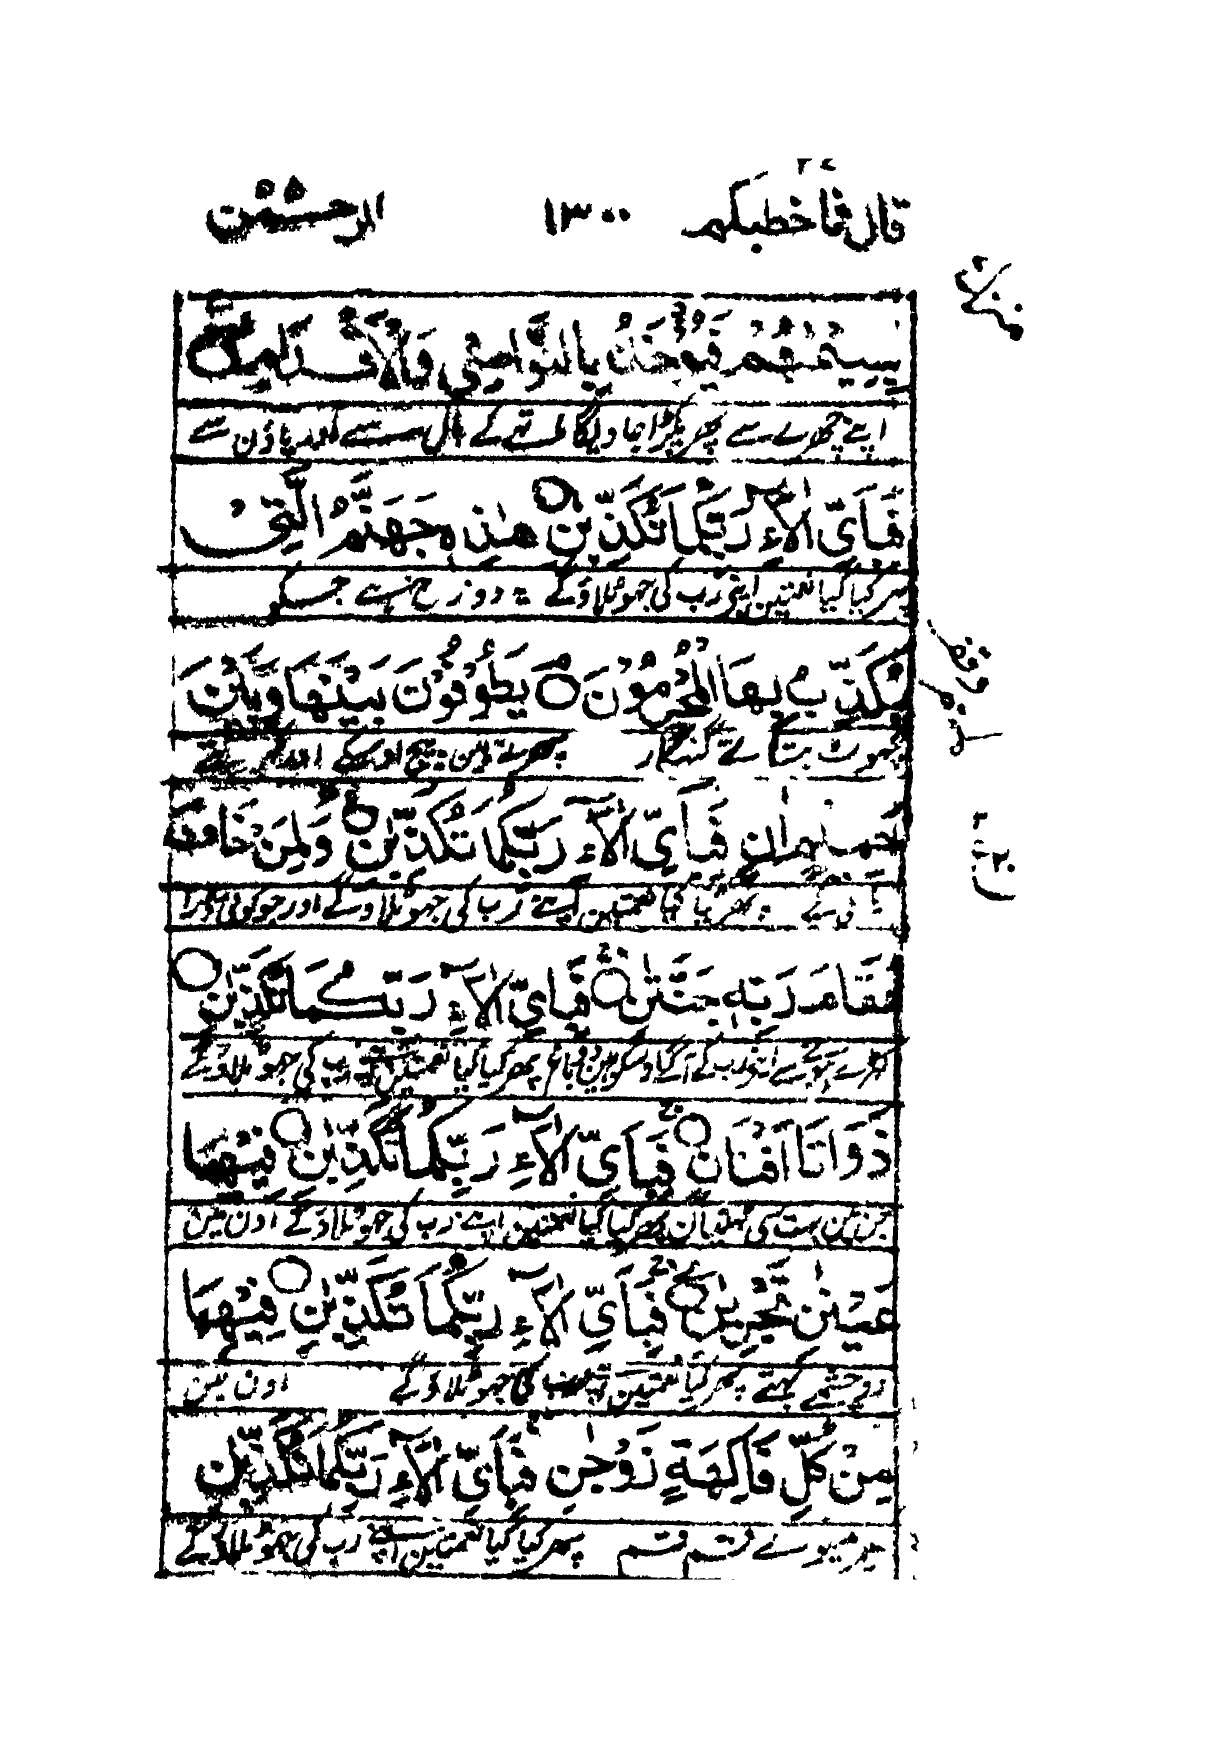 قال فما خطبکم ۲۷ ۱۳۰۰ الرحمٰن
بِسِيْمٰهُمْ فَيُؤْخَذُ بِالنَّوَاصِيْ وَالْاَقْدَامِ
اپنے چہرے سے پھر پکڑا جاویگا ماتھے کے بال سے اور پاؤن سے
فَبِاَيِّ اٰلَآءِ رَبِّكُمَا تُكَذِّبٰنِ هٰذِهٖ جَهَنَّمُ الَّتِيْ
پھر کیا کیا نعمتین اپنی رب کی جھوٹلاؤگے یہ دوزخ ہے جسکو
يُكَذِّبُ بِهَا الْمُجْرِمُوْنَ يَطُوْفُوْنَ بَيْنَهَا وَبَيْنَ
جھوٹ بتاتے گنہگار پھرتے ہین بیچ اوسکے اور
حَمِيْمٍ اٰنٍ فَبِاَيِّ اٰلَآءِ رَبِّكُمَا تُكَذِّبٰنِ وَلِمَنْ خَافَ
پھر کیا کیا نعمتین اپنے رب کی جھوٹلاؤگے اور جو کوئی ڈرا
مَقَامَ رَبِّهٖ جَنَّتٰنِ فَبِاَيِّ اٰلَآءِ رَبِّكُمَا تُكَذِّبٰنِ
کھڑے ہونے سے اپنے رب کے آگے اوسکو ہین دو باغ پھر کیا کیا نعمتین اپنے رب کی جھوٹلاؤگے
ذَوَاتَا اَفْنَانٍ فَبِاَيِّ اٰلَآءِ رَبِّكُمَا تُكَذِّبٰنِ فِيْهِمَا
جن مین بہت سی ٹہنیان پھر کیا کیا نعمتین اپنے رب کی جھوٹلاؤگے اون مین
عَيْنٰنِ تَجْرِيٰنِ فَبِاَيِّ اٰلَآءِ رَبِّكُمَا تُكَذِّبٰنِ فِيْهِمَا
دو چشمے بہتے پھر کیا نعمتین رب کی جھوٹلاؤگے اون مین
مِنْ كُلِّ فَاكِهَةٍ زَوْجٰنِ فَبِاَيِّ اٰلَآءِ رَبِّكُمَا تُكَذِّبٰنِ
ہر میوے قسم قسم پھر کیا کیا نعمتین اپنے رب کی جھوٹلاؤگے